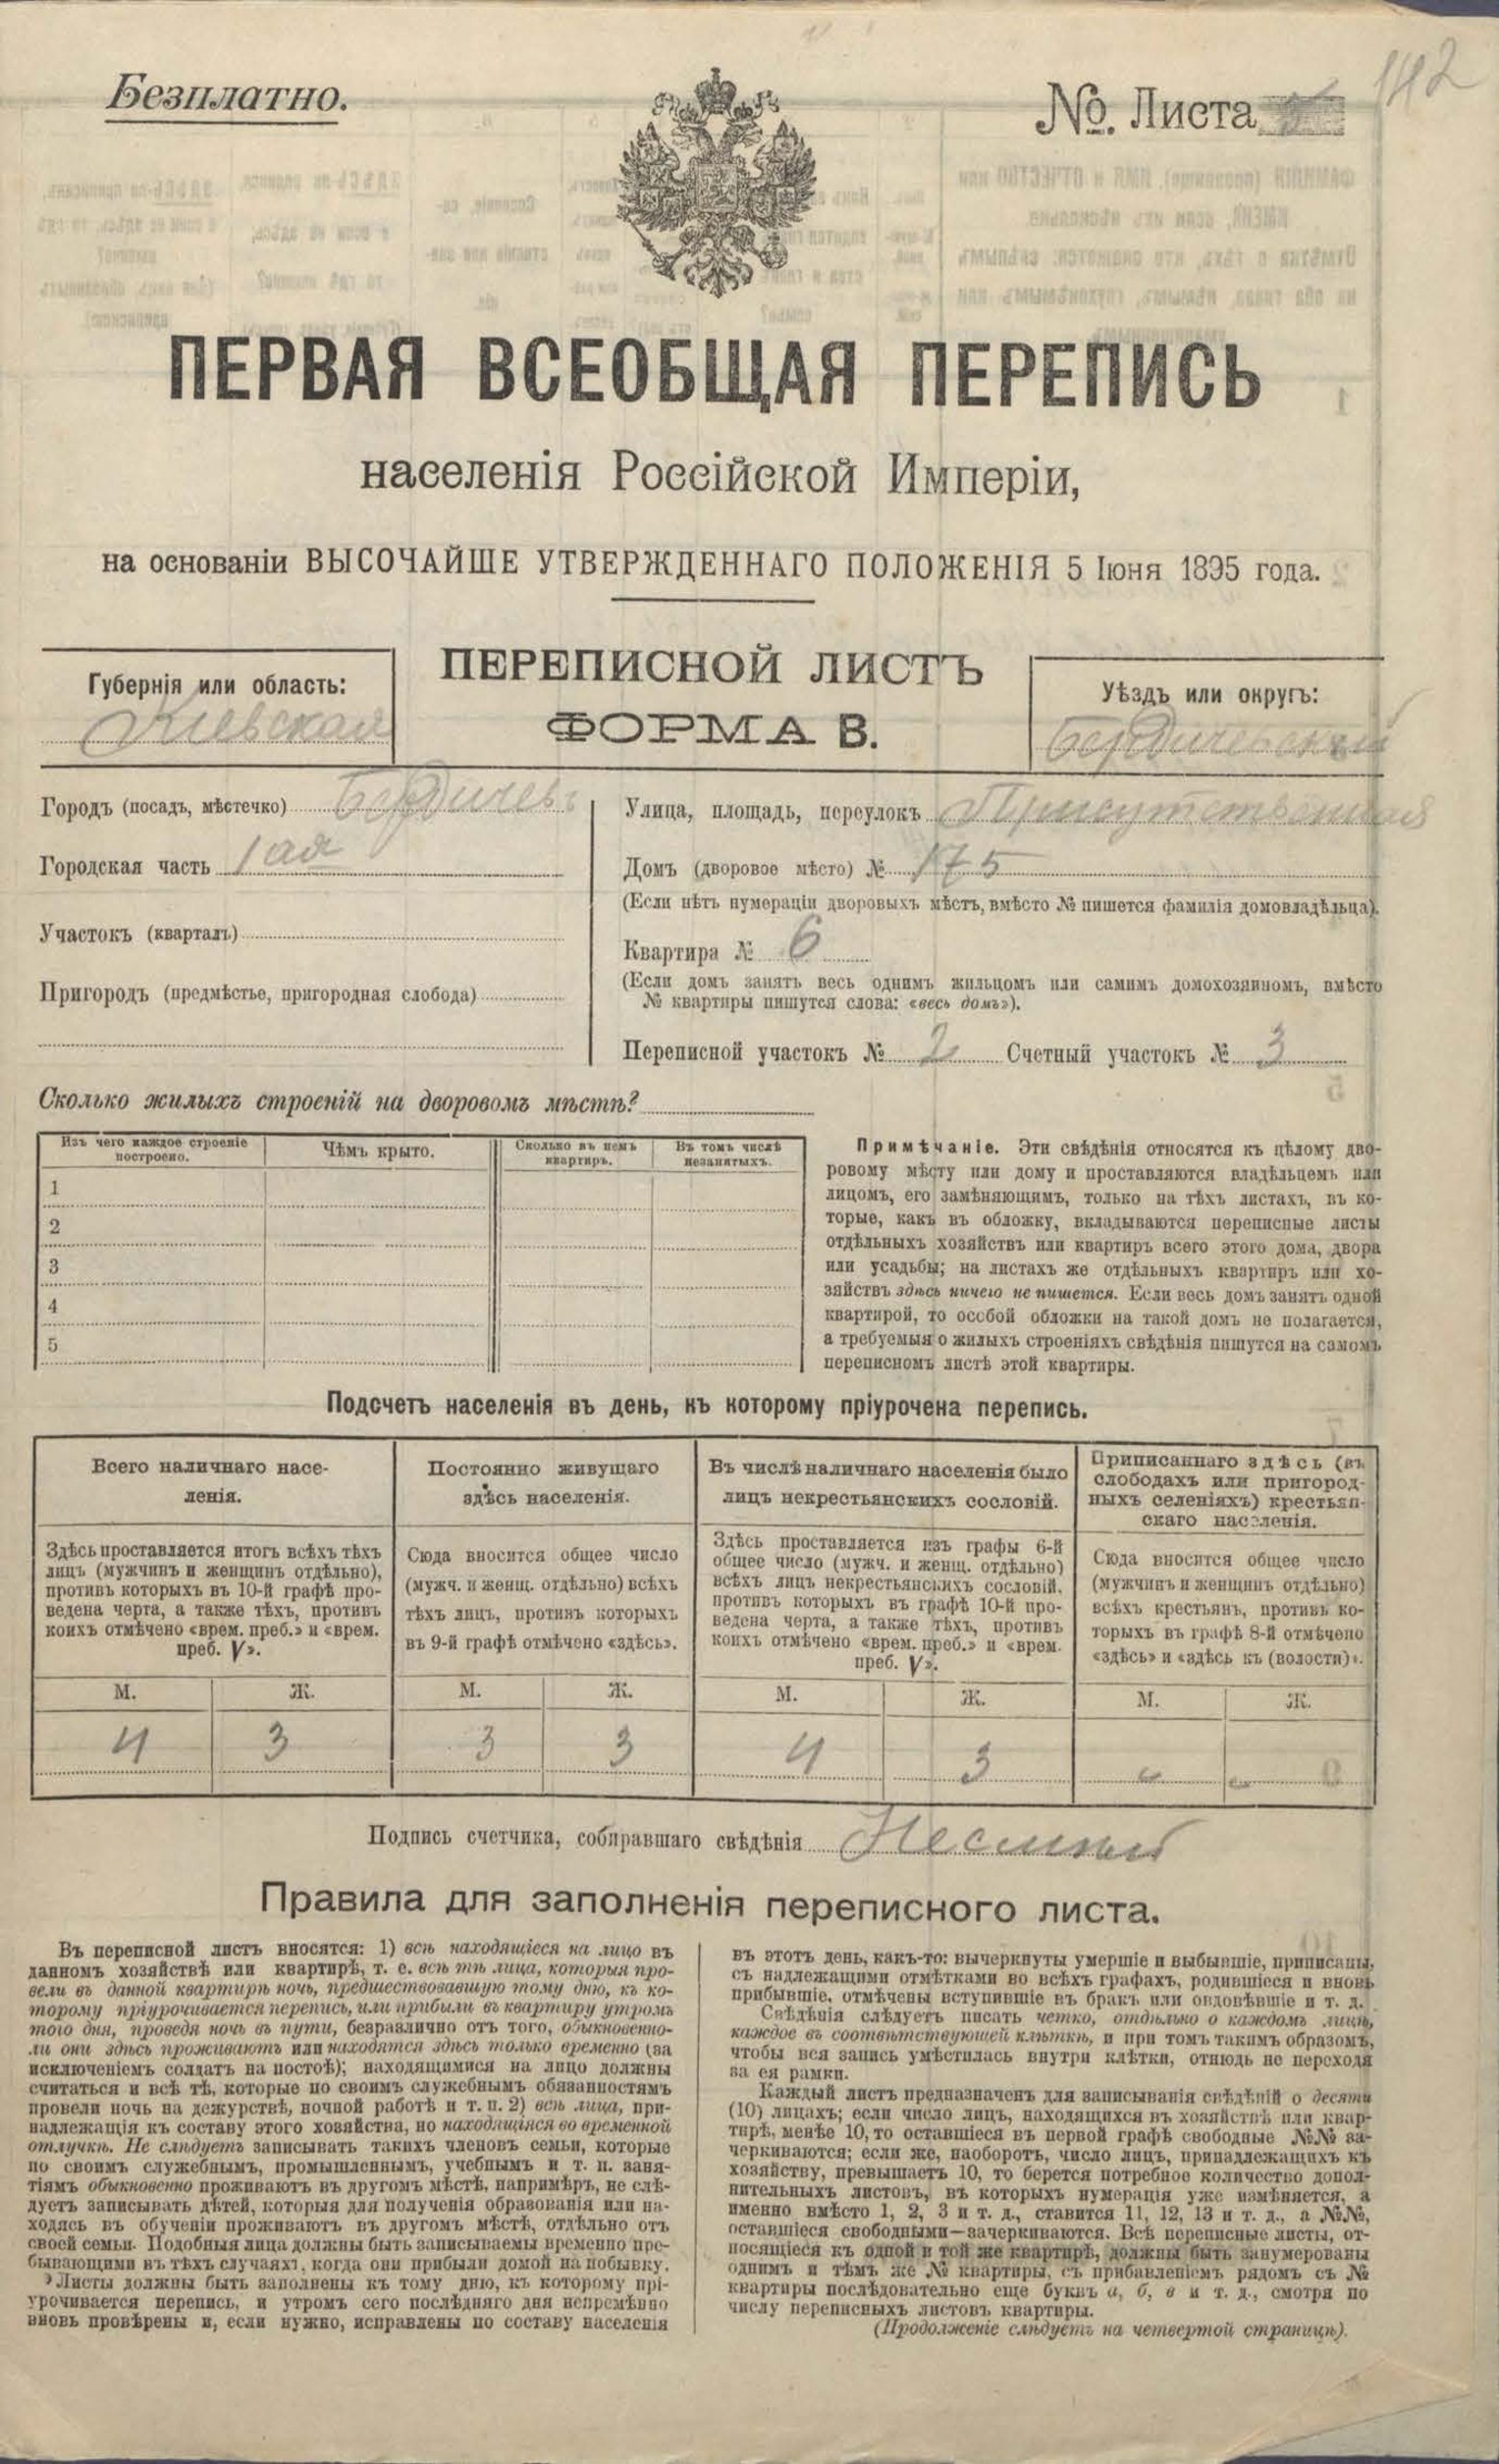 Безплатно.
№. Листа
142
ПЕРВАЯ ВСЕОБЩАЯ ПЕРЕПИСЬ
населенія Россійской Имперіи,
на основаніи ВЫСОЧАЙШЕ УТВЕРЖДЕННАГО ПОЛОЖЕНІЯ 5 Іюня 1895 года.
ПЕРЕПИСНОЙ ЛИСТЪ
ФОРМА В.
Губернія или область:
Кіевская
Уѣздъ или округъ:
Бердичевскій
Городъ (посадъ, мѣстечко) Бердичевъ
Городская часть 1ая
Участокъ (кварталъ)
Пригородъ (предмѣстье, пригородная слобода)
Улица, площадь, переулокъ Присутственная
Домъ (дворовое мѣсто) № 175
(Если нѣтъ нумераціи дворовыхъ мѣстъ, вмѣсто № пишется фамилія домовладѣльца).
Квартира № 6
(Если домъ занятъ весь однимъ жильцомъ или самимъ домохозяиномъ, вмѣсто
№ квартиры пишутся слова: «весь домъ»).
Переписной участокъ № 2 Счетный участокъ № 3
Сколько жилыхъ строеній на дворовомъ мѣстѣ?
Изъ чего каждое строеніе
построено.
Чѣмъ крыто.
Сколько въ немъ
квартиръ.
Въ томъ числѣ
незанятыхъ.
1
2
3
4
5
Примѣчаніе. Эти свѣдѣнія относятся къ цѣлому дво-
ровому мѣсту или дому и проставляются владѣльцемъ или
лицомъ, его замѣняющимъ, только на тѣхъ листахъ, въ ко-
торые, какъ въ обложку, вкладываются переписные листы
отдѣльныхъ хозяйствъ или квартиръ всего этого дома, двора
или усадьбы; на листахъ же отдѣльныхъ квартиръ или хо-
зяйствъ здѣсь ничего не пишется. Если весь домъ занятъ одной
квартирой, то особой обложки на такой домъ не полагается,
а требуемыя о жилыхъ строеніяхъ свѣдѣнія пишутся на самомъ
переписномъ листѣ этой квартиры.
Подсчетъ населенія въ день, къ которому пріурочена перепись.
Всего наличнаго насе-
ленія.
Здѣсь проставляется итогъ всѣхъ тѣхъ
лицъ (мужчинъ и женщинъ отдѣльно),
противъ которыхъ въ 10-й графѣ про-
ведена черта, а также тѣхъ, противъ
коихъ отмѣчено «врем. преб.» и «врем.
преб. V».
Постоянно живущаго
здѣсь населенія.
Сюда вносится общее число
(мужч. и женщ. отдѣльно) всѣхъ
тѣхъ лицъ, противъ которыхъ
въ 9-й графѣ отмѣчено «здѣсь».
Въ числѣ наличнаго населенія было
лицъ некрестьянскихъ сословій.
Здѣсь проставляется изъ графы 6-й
общее число (мужч. и женщ. отдѣльно)
всѣхъ лицъ некрестьянскихъ сословій,
противъ которыхъ въ графѣ 10-й про-
ведена черта, а также тѣхъ, противъ
коихъ отмѣчено «врем. преб.» и «врем.
преб. V».
Приписаннаго здѣсь (въ
слободахъ или пригород-
ныхъ селеніяхъ) крестьян-
скаго населенія.
Сюда вносится общее число
(мужчинъ и женщинъ отдѣльно)
всѣхъ крестьянъ, противъ ко-
торыхъ въ графѣ 8-й отмѣчено
«здѣсь» и «здѣсь къ (волости)».
М. Ж. М. Ж. М. Ж. М. Ж.
4 3 3 3 4 3 - -
Подпись счетчика, собиравшаго свѣдѣнія
Правила для заполненія переписного листа.
Въ переписной листъ вносятся: 1) всѣ находящіеся на лицо въ
данномъ хозяйствѣ или квартирѣ, т. е. всѣ тѣ лица, которыя про-
вели въ данной квартирѣ ночь, предшествовавшую тому дню, къ ко-
торому пріурочивается перепись, или прибыли въ квартиру утромъ
того дня, проведя ночь въ пути, безразлично отъ того, обыкновенно-
ли они здѣсь проживаютъ или находятся здѣсь только временно (за
исключеніемъ солдатъ на постоѣ); находящимися на лицо должны
считаться и всѣ тѣ, которые по своимъ служебнымъ обязанностямъ
провели ночь на дежурствѣ, ночной работѣ и т. п. 2) всѣ лица, при-
надлежащія къ составу этого хозяйства, но находящіяся во временной
отлучкѣ. Не слѣдуетъ записывать такихъ членовъ семьи, которые
по своимъ служебнымъ, промышленнымъ, учебнымъ и т. п. заня-
тіямъ обыкновенно проживаютъ въ другомъ мѣстѣ, напримѣръ, не слѣ-
дуетъ записывать дѣтей, которыя для полученія образованія или на-
ходясь въ обученіи проживаютъ въ другомъ мѣстѣ, отдѣльно отъ
своей семьи. Подобныя лица должны быть записываемы временно пре-
бывающими въ тѣхъ случаяхъ, когда они прибыли домой на побывку.
Листы должны быть заполнены къ тому дню, къ которому прі-
урочивается перепись, и утромъ сего послѣдняго дня непремѣнно
вновь провѣрены и, если нужно, исправлены по составу населенія
въ этотъ день, какъ-то: вычеркнуты умершіе и выбывшіе, приписаны,
съ надлежащими отмѣтками во всѣхъ графахъ, родившіеся и вновь
прибывшіе, отмѣчены вступившіе въ бракъ или овдовѣвшіе и т. д.
Свѣдѣнія слѣдуетъ писать четко, отдѣльно о каждомъ лицѣ,
каждое въ соотвѣтствующей клѣткѣ, и при томъ такимъ образомъ,
чтобы вся запись умѣстилась внутри клѣтки, отнюдь не переходя
за ея рамки.
Каждый листъ предназначенъ для записыванія свѣдѣній о десяти
(10) лицахъ; если число лицъ, находящихся въ хозяйствѣ или квар-
тирѣ, менѣе 10, то оставшіеся въ первой графѣ свободные №№ за-
черкиваются; если же, наоборотъ, число лицъ, принадлежащихъ къ
хозяйству, превышаетъ 10, то берется потребное количество допол-
нительныхъ листовъ, въ которыхъ нумерація уже измѣняется, а
именно вмѣсто 1, 2, 3 и т. д., ставится 11, 12, 13 и т. д., а №№,
оставшіеся свободными—зачеркиваются. Всѣ переписные листы, от-
носящіеся къ одной и той же квартирѣ, должны быть занумерованы
однимъ и тѣмъ же № квартиры, съ прибавленіемъ рядомъ съ №
квартиры послѣдовательно еще буквъ а, б, в и т. д., смотря по
числу переписныхъ листовъ квартиры.
(Продолженіе слѣдуетъ на четвертой страницѣ).